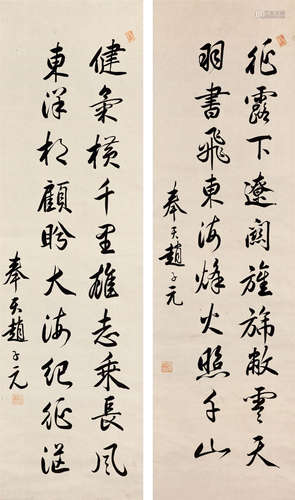 征露下遼闕旌旆敝雲天
羽書飛東海烽火照千山
奉天趙子元
健氣橫千里雄志乘長風
東洋顧盼大海紀征
奉天趙子元